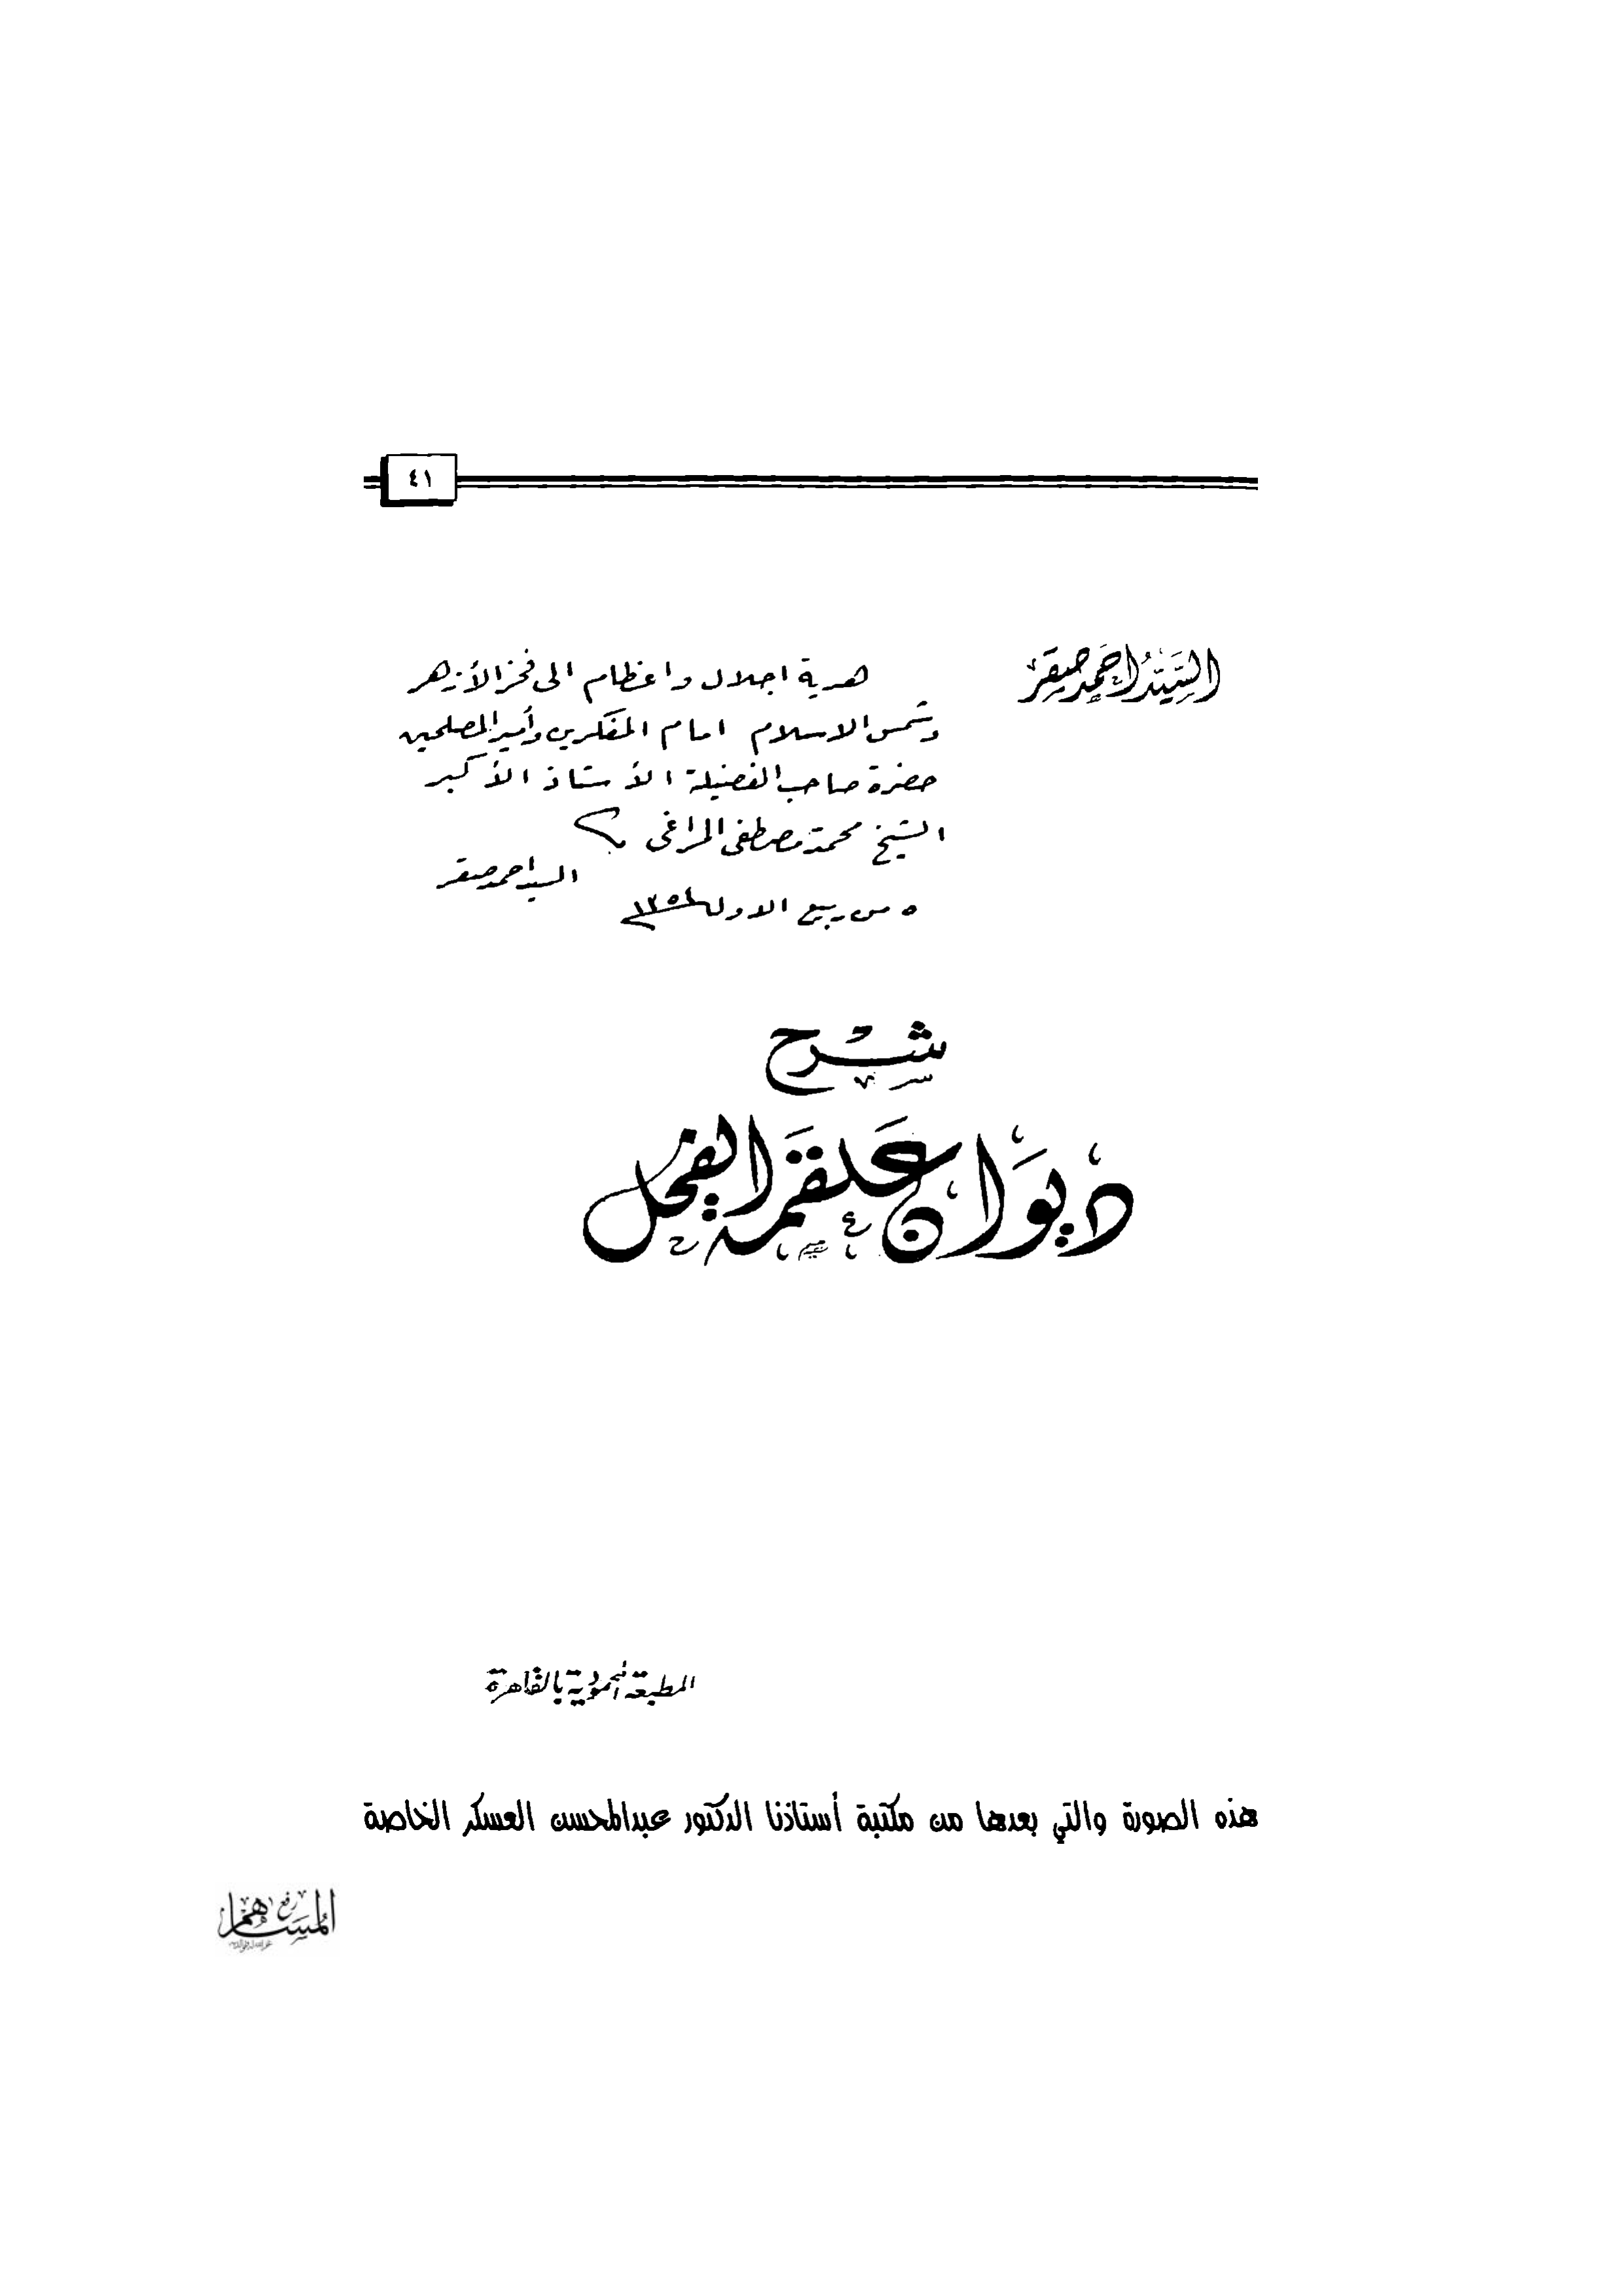 ٤١
السَّيِّدُ أَحْمَد صَقِر
هدية اجلال واعظام الى فخر الأزهر
وشمس الاسلام امام المفكرين وأمير المصلحين
حضرة صاحب الفضيلة الأستاذ الأكبر
الشيخ محمد مصطفى المراغى
السيد احمد صقر
٥ من ربيع الاول ١٣٥٤
شرح
ديوان علقمة الفحل
المطبعة المحمودية بالقاهرة
هذه الصورة والتي بعدها من مكتبة أستاذنا الدكتور عبدالمحسن العسكر الخاصة
رفع
المساهم